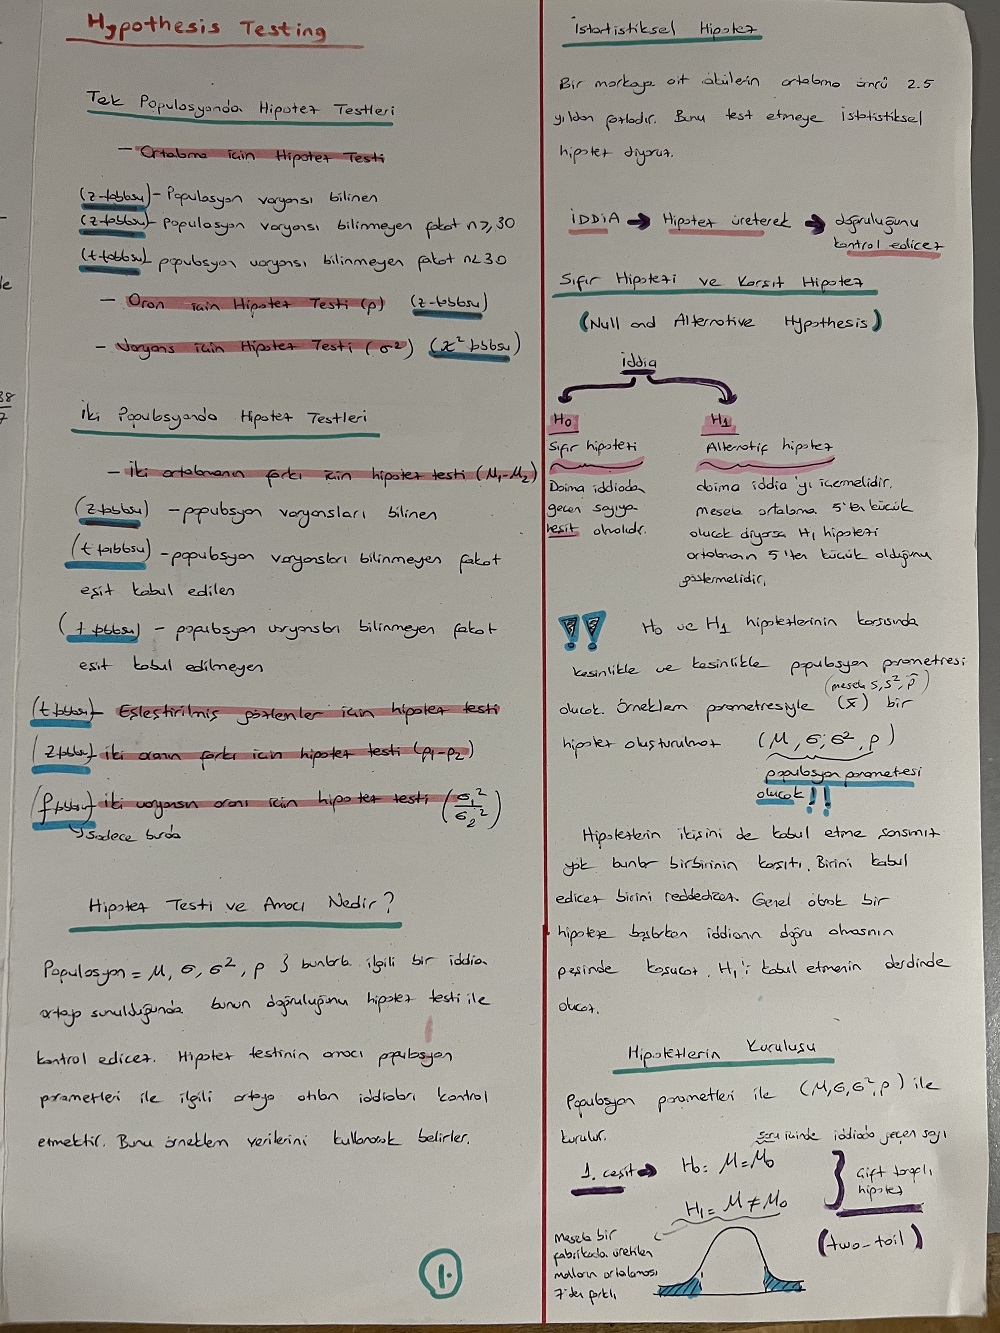 Hypothesis Testing
Tek Populasyonda Hipotez Testleri
- Ortalama için Hipotez Testi
(z-tablosu)- Populasyon varyansı bilinen
(z-tablosu)- populasyon varyansı bilinmeyen fakat n≥30
(t-tablosu) populasyon varyansı bilinmeyen fakat n<30
- Oran için Hipotez Testi (p) (z-tablosu)
- Varyans için Hipotez Testi (σ²) (x² tablosu)
İki Populasyonda Hipotez Testleri
- İki ortalamanın farkı için hipotez testi (M₁-M₂)
(z tablosu) - populasyon varyansları bilinen
(t tablosu) - populasyon varyansları bilinmeyen fakat
eşit kabul edilen
(t tablosu) - populasyon varyansları bilinmeyen fakat
eşit kabul edilmeyen
(t tablosu)- Eşleştirilmiş gözlemler için hipotez testi
(z tablosu)- iki oranın farkı için hipotez testi (p₁-p₂)
(f tablosu)- iki varyansın oranı için hipotez testi (σ₁²/σ₂²)
↳ sadece burda
Hipotez Testi ve Amacı Nedir?
Populasyon = M, σ, σ², p } bunlarla ilgili bir iddia
ortaya sunulduğunda bunun doğruluğunu hipotez testi ile
kontrol edicez. Hipotez testinin amacı populasyon
parametleri ile ilgili ortaya atılan iddiaları kontrol
etmektir. Bunu örneklem verilerini kullanarak belirler.
1.
İstatistiksel Hipotez
Bir markaya ait akülerin ortalama ömrü 2.5
yıldan fazladır. Bunu test etmeye istatistiksel
hipotez diyoruz.
İDDİA → Hipotez üreterek → doğruluğunu
kontrol edicez
Sıfır Hipotezi ve Karşıt Hipotez
(Null and Alternative Hypothesis)
iddia
H₀ H₁
Sıfır hipotezi Alternatif hipotez
Daima iddiada
geçen sayıya
eşit olmalıdır.
daima iddia'yı içermelidir.
mesela ortalama 5'ten küçük
olucak diyorsa H₁ hipotezi
ortalamanın 5'ten küçük olduğunu
göstermelidir.
!! H₀ ve H₁ hipotezlerinin karşısında
kesinlikle ve kesinlikle populasyon parametresi
(mesela s, s², p̂)
olucak. Örneklem parametresiyle (x̄) bir
hipotez oluşturulmaz (M, σ, σ², p)
populasyon parametresi
olucak !!
Hipotezlerin ikisini de kabul etme şansımız
yok bunlar birbirinin karşıtı. Birini kabul
edicez birini reddedicez. Genel olarak bir
hipoteze başlarken iddianın doğru olmasının
peşinde koşucaz. H₁'i kabul etmenin derdinde
olucaz.
Hipotezlerin Kuruluşu
Populasyon parametleri ile (M, σ, σ², p) ile
kurulur.
soru içinde iddiada geçen sayı
1. çeşit → H₀ = M = M₀
H₁ = M ≠ M₀
} Çift taraflı
hipotez
(two-tail)
Mesela bir
fabrikada üretilen
malların ortalaması
7'den farklı